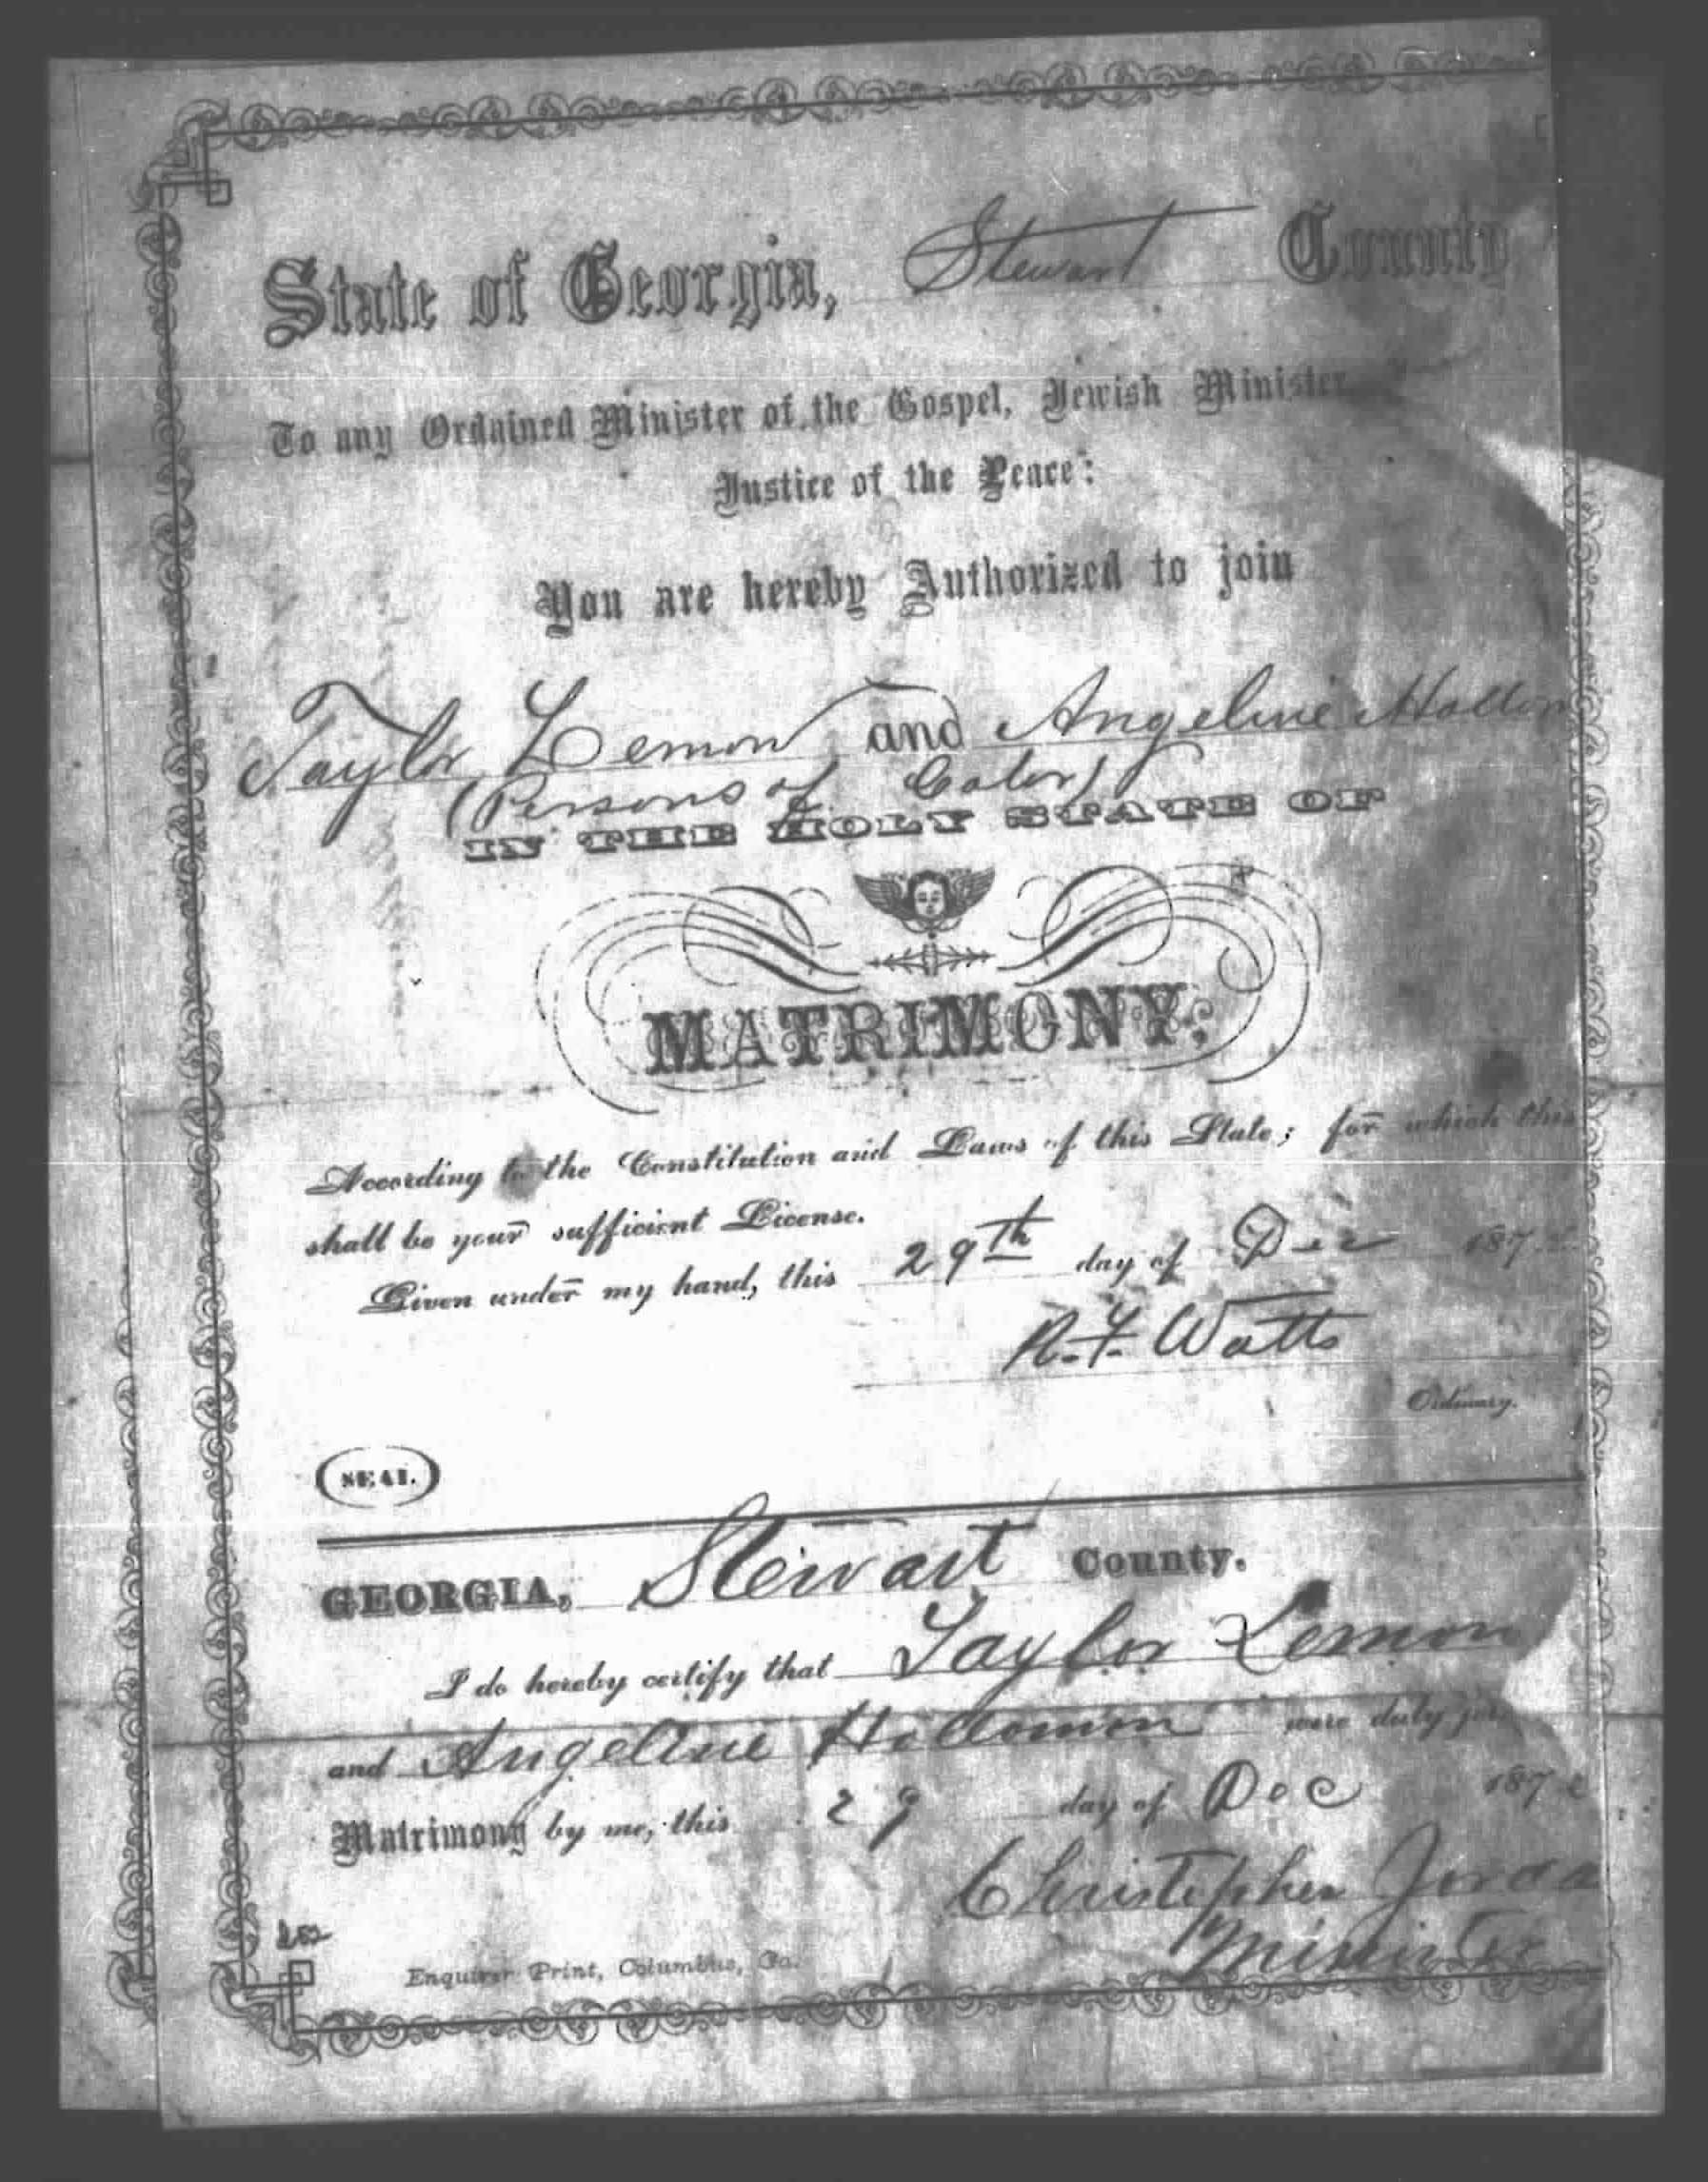 State of Georgia, Stewart County
To any Ordained Minister of the Gospel, Jewish Minister
Justice of the Peace:
You are hereby Authorized to join
Taylor Lemon and Angeline
(Persons of Color)
IN THE HOLY STATE OF
MATRIMONY,
According to the Constitution and Laws of this State; for which this
shall be your sufficient License.
Given under my hand, this 29th day of Dec 187
R. F. Watts
Ordinary.
SEAL.
GEORGIA, Stewart County.
I do hereby certify that Taylor Lemon
and Angeline were duly
Matrimony by me, this 29 day of Dec 187
Christopher
Minister
Enquirer Print, Columbus, Ga.